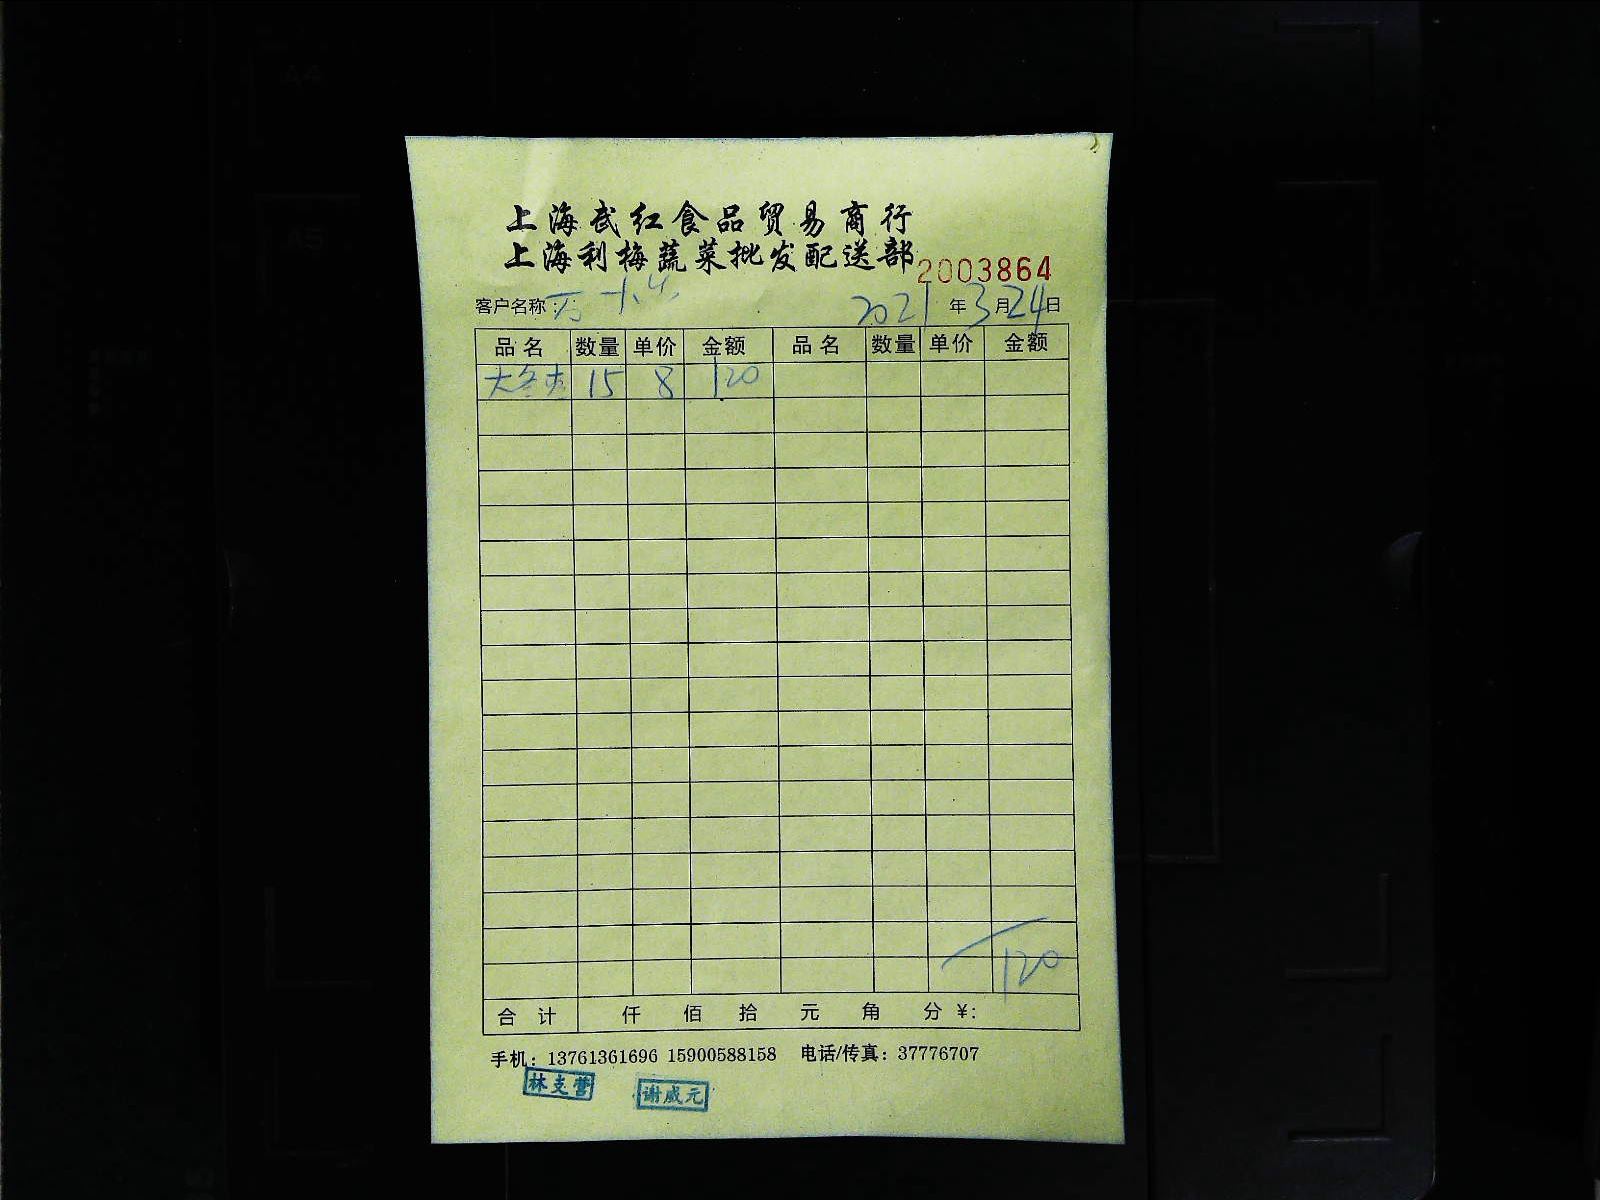 上海武红食品贸易商行
上海利梅蔬菜批发配送部
2003864
客户名称: 2021年3月24日
品名 数量 单价 金额 品名 数量 单价 金额
15 8 120
120
合计 仟 佰 拾 元 角 分 ¥:
手机: 13761361696 15900588158 电话/传真: 37776707
林支营 谢威元